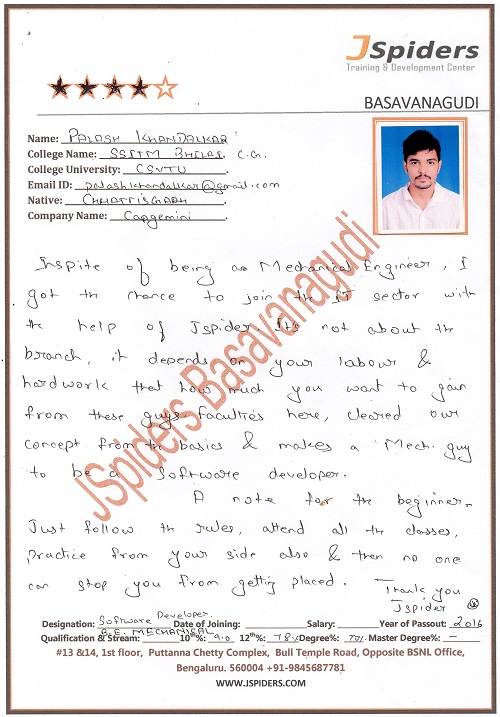 JSpiders
Training & Development Center
BASAVANAGUDI
Name: PALASH KHANDALKAR
College Name: SSITM BHILAI, C.G.
College University: CSVTU
Email ID: palashkhandalkar@gmail.com
Native: CHHATTISGARH
Company Name: Capgemini
Inspite of being an Mechanical Engineer, I
got th chance to join the IT sector with
th help of Jspider. It's not about th
branch, it depends on your labour &
hardwork that how much you want to gain
from these guys. Faculties here, cleared our
concept from th basics & makes a Mech. guy
to be a Software developer.
A note for th beginner-
Just follow th rules, attend all th classes,
practice from your side also & then no one
can stop you from getting placed.
Thank you
Jspider
JSpiders Basavanagudi
Designation: Software Developer. Date of Joining: Salary: Year of Passout: 2016
Qualification & Stream: B.E. MECHANICAL 10th%: 90 12th%: 78% Degree%: 70% Master Degree%: -
#13 &14, 1st floor, Puttanna Chetty Complex, Bull Temple Road, Opposite BSNL Office,
Bengaluru. 560004 +91-9845687781
WWW.JSPIDERS.COM